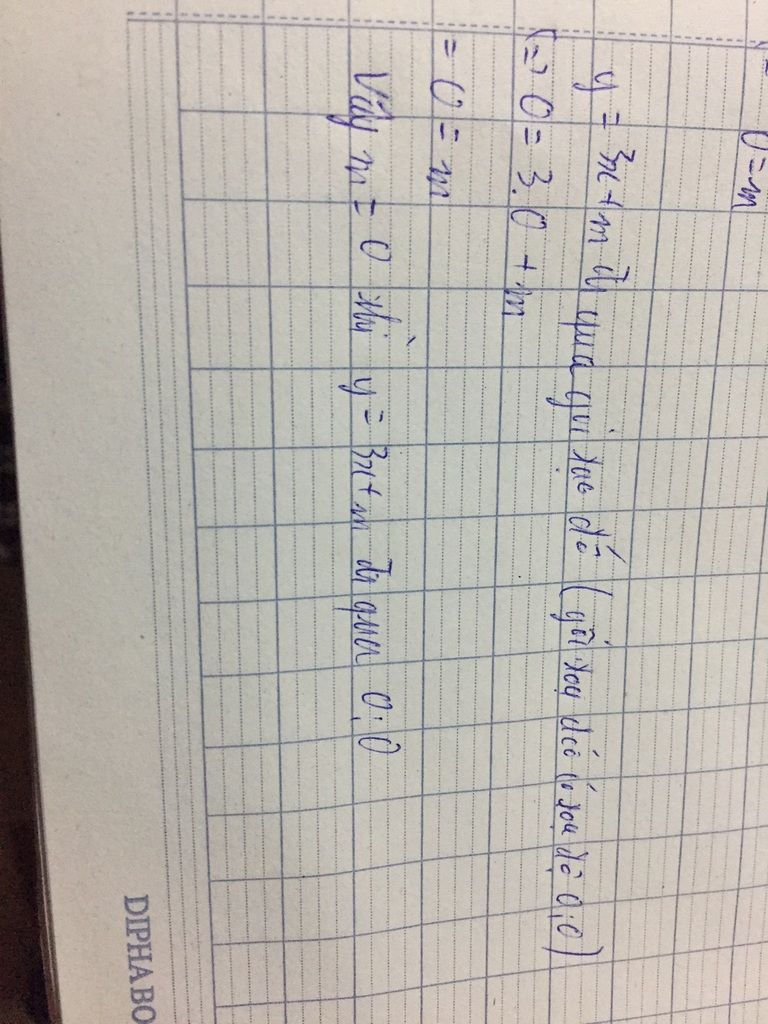 0 = m
y = 3x + m đi qua gốc tọa độ (gốc tọa độ có tọa độ 0;0)
(=> 0 = 3.0 + m
= 0 = m
Vậy m = 0 thì y = 3x + m đi qua 0;0
DIPHABO